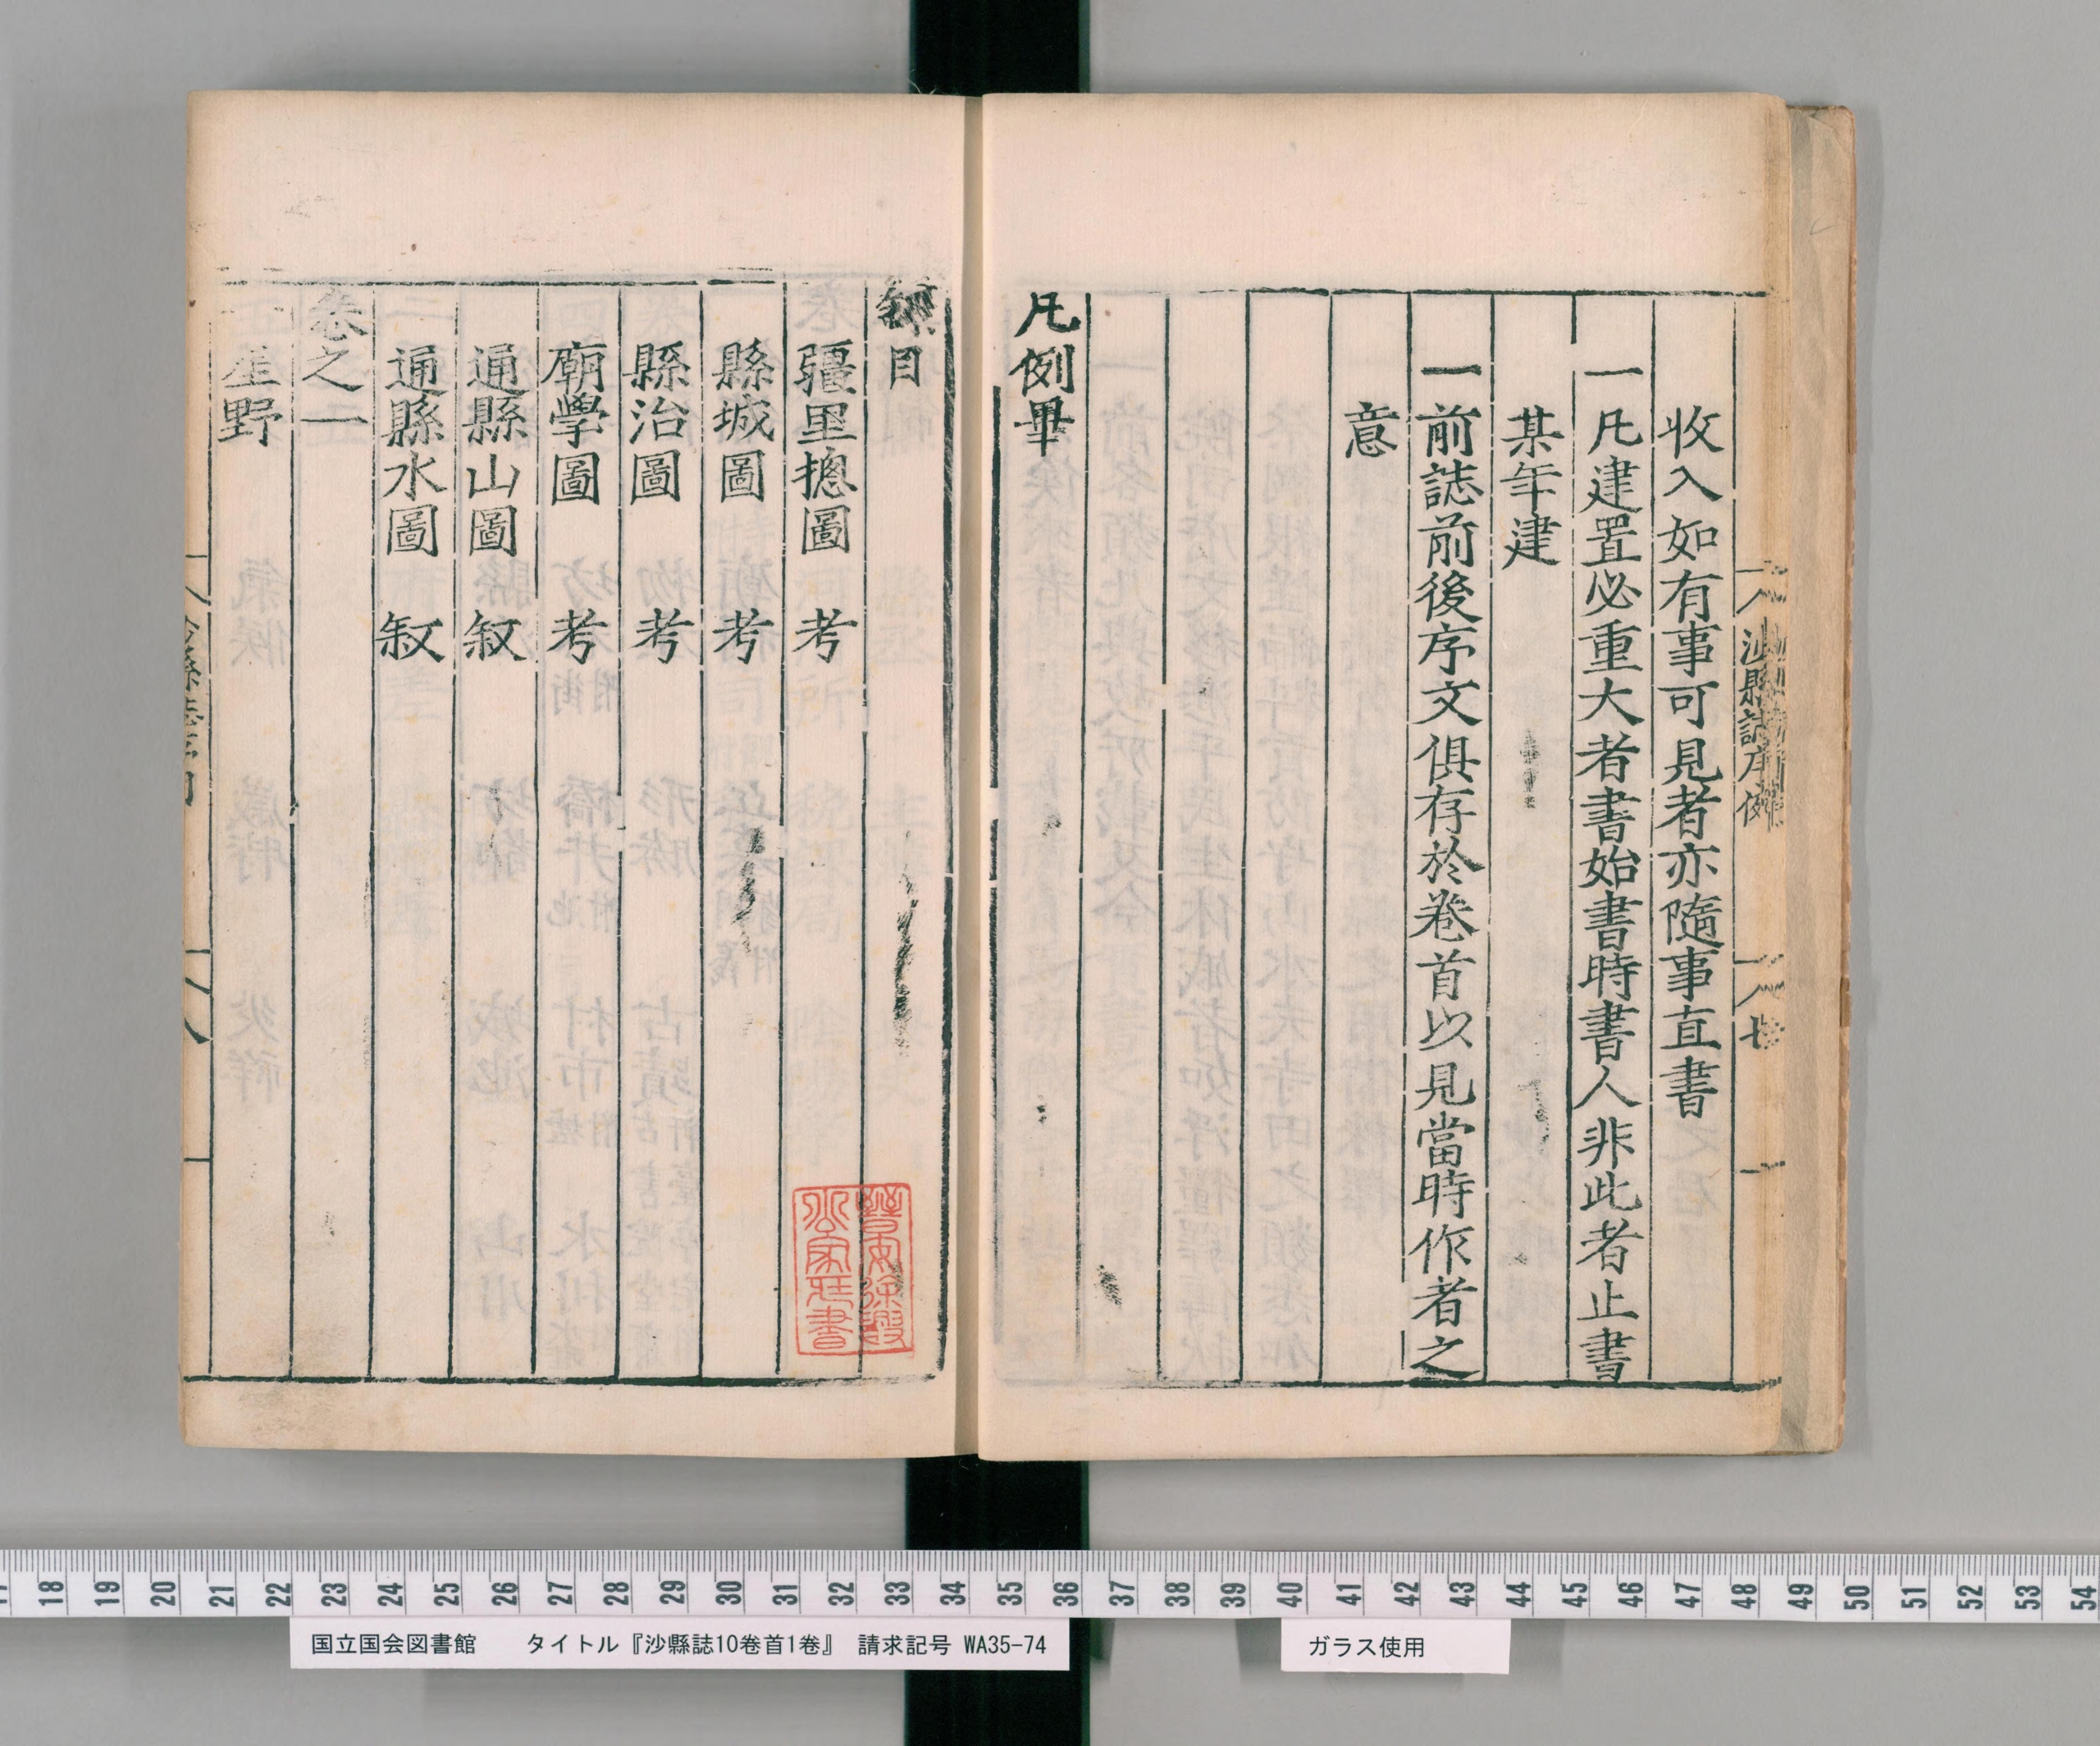 收入如有事可見者亦隨事直書
一凡建置必重大者書始書時書人非此者止書
某年建
一前誌前後序文俱存於卷首以見當時作者之
意
凡例畢
目
疆里摠圖 考
縣城圖 考
縣治圖 考
廟學圖 考
通縣山圖 叙
通縣水圖 叙
卷之一
星野
晉安徐𤊹
家藏書
17 18 19 20 21 22 23 24 25 26 27 28 29 30 31 32 33 34 35 36 37 38 39 40 41 42 43 44 45 46 47 48 49 50 51 52 53 54
国立国会図書館 タイトル『沙縣誌10巻首1巻』 請求記号 WA35-74
ガラス使用